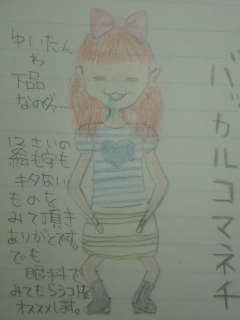 バッカルコマネチ
ゆいたん
わ
下品
なのヴァー
12さいの
絵も字も
キタない
ものを
みて頂き
ありがとです。
でも
眼科で
みてもらうコトを
オススメします。